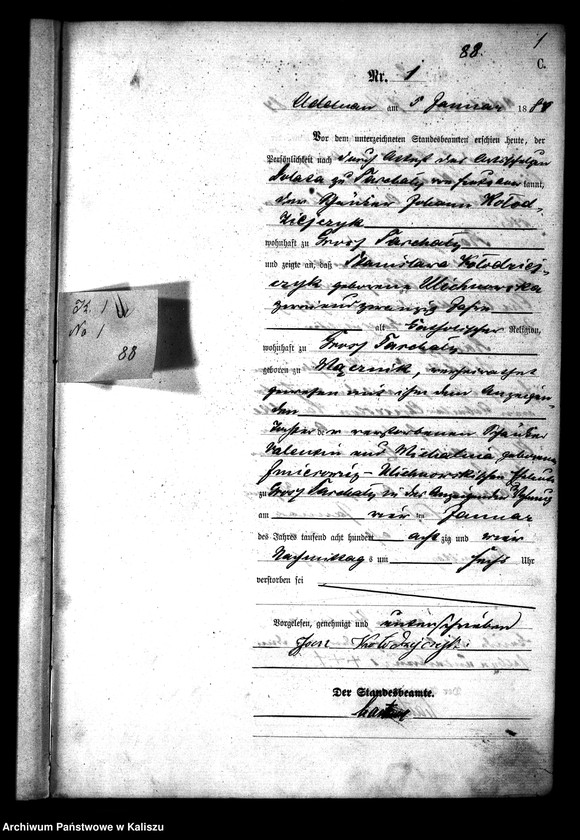 88.
1
C.
Nr. 1
Adelnau am 5 Januar 1884
Vor dem unterzeichneten Standesbeamten erschien heute, der
Persönlichkeit nach durch Attest des Ortsschulzen
zu Tarchaly kannt,
der Häusler Johann Kołod-
ziejczyk
wohnhaft zu Gross Tarchaly
und zeigte an, daß Stanislava Kołodziej-
czyk geborene Uichnowska
zwanzig Jahre
alt katholischer Religion,
wohnhaft zu Gross Tarchaly
geboren zu verheirathet
gewesen mit ihm dem Anzeigen-
den
Tochter der verstorbenen Häusler
Valentin und Michalina geborene
Uichnowskischen Eheleute
zu Gross Tarchaly in des Anzeigenden Wohnung
am vier ten Januar
des Jahres tausend acht hundert acht zig und vier
Nachmittag s um sechs Uhr
verstorben sei
Vorgelesen, genehmigt und unterschrieben
Jan Kołodziejczyk
Der Standesbeamte.
K. 1
No 1
88
Archiwum Państwowe w Kaliszu